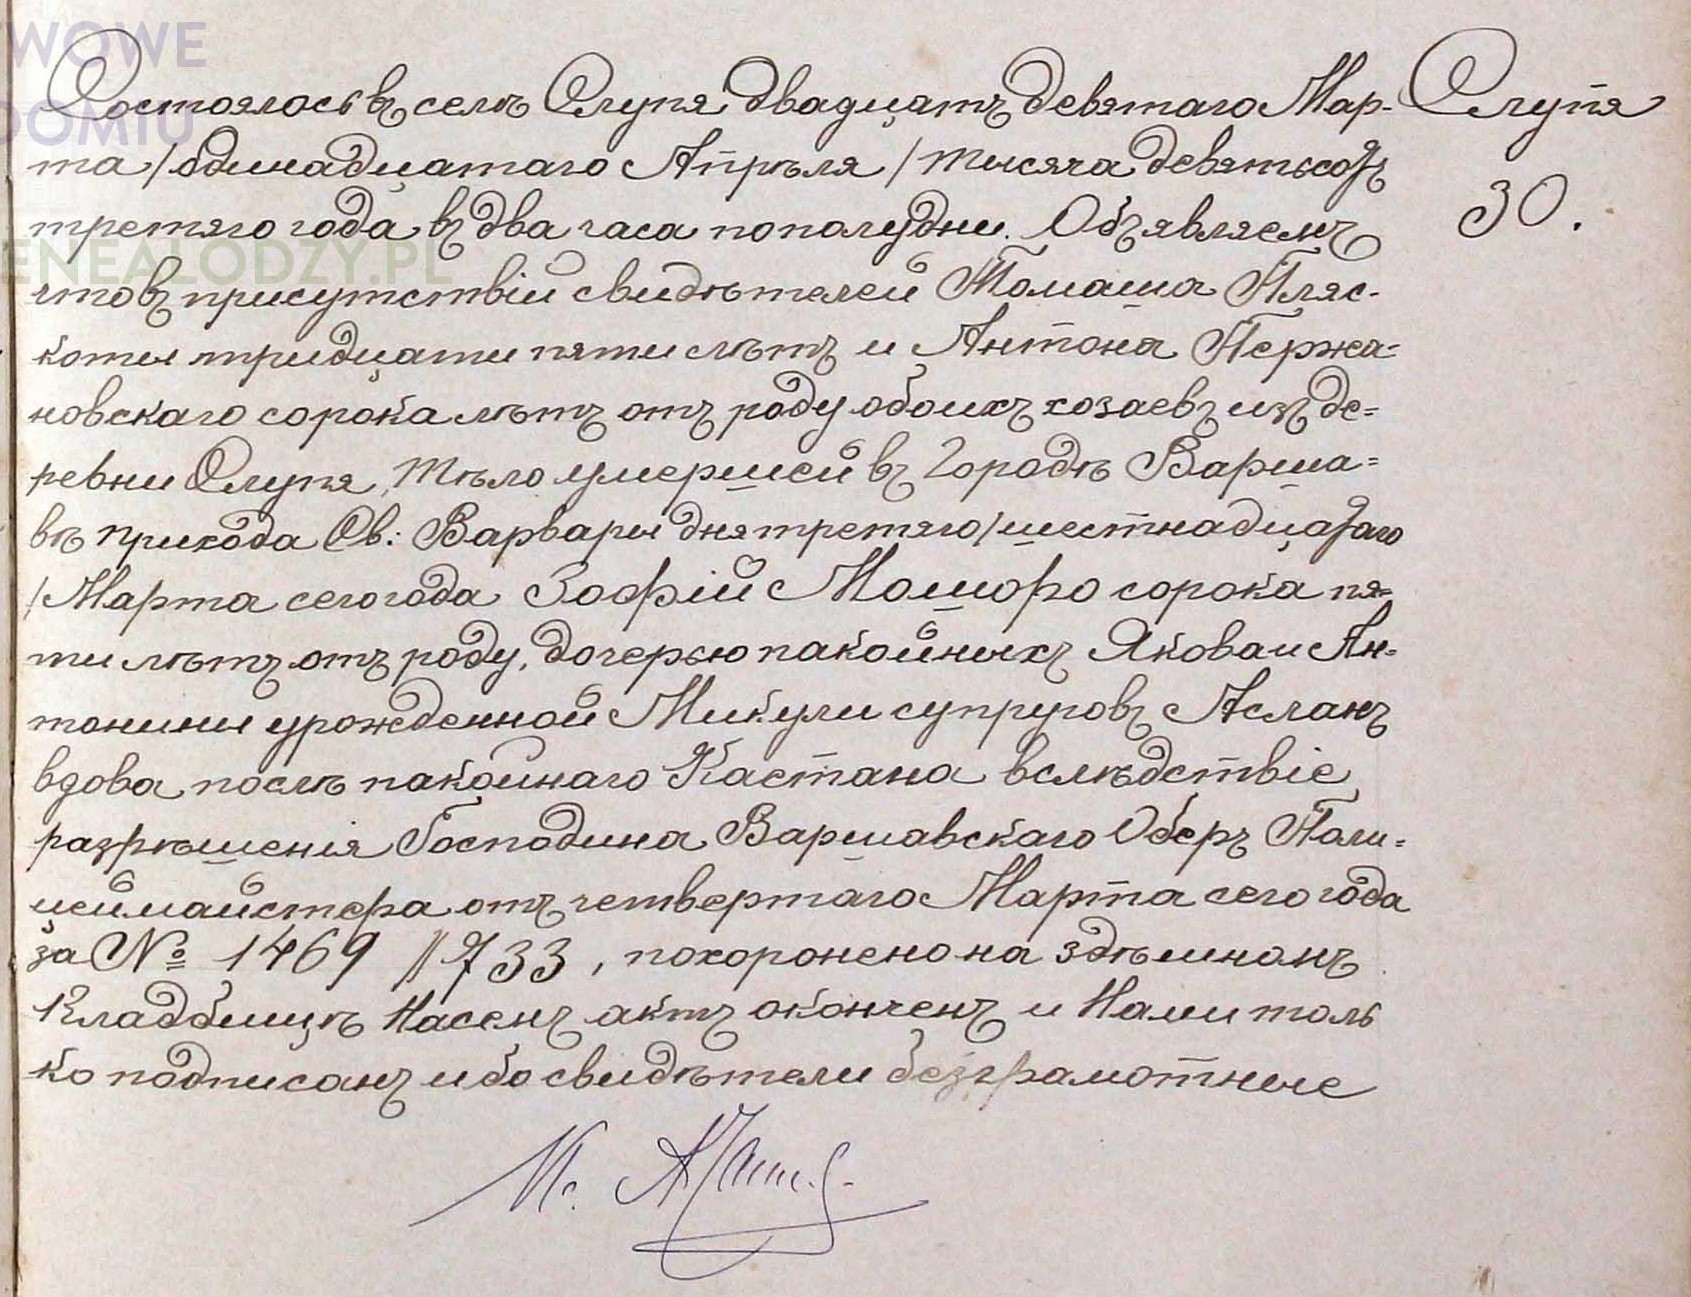 Состоялось въ селѣ Слупя двадцать девятаго Мар- Слупя
та /одинадцатаго Апрѣля/ тысяча девятьсотъ
30.
третяго года въ два часа пополудни. Объявляемъ
что въ присутствій свидѣтелей Томаша Пляс-
коты тридцати пяти лѣтъ и Антона Пержа=
новскаго сорока лѣтъ отъ роду обоихъ хозаевъ изъ де=
ревни Слупя, тѣло умершей въ Городѣ Варша=
вѣ прихода Св: Варвары дня третяго/шестнадцатаго
/Марта сего года Зофій Мошоро сорока пя=
ти лѣтъ отъ роду, дочерью пакойныхъ Якова и Ан=
тонины урожденной Микули супруговъ Асланъ
вдова послѣ пакойнаго Каетана вслѣдствіе
разрѣшенія Господина Варшавскаго Оберъ Поли=
цеймайстера отъ четвертаго Марта сего года
за № 1469 // 733, похоронено на здѣшномъ
Кладбищѣ Насемъ актъ оконченъ и Нами толь
ко подписанъ ибо свидѣтели безграмотные
WOWE
DOMIU
ENEALODZY.PL